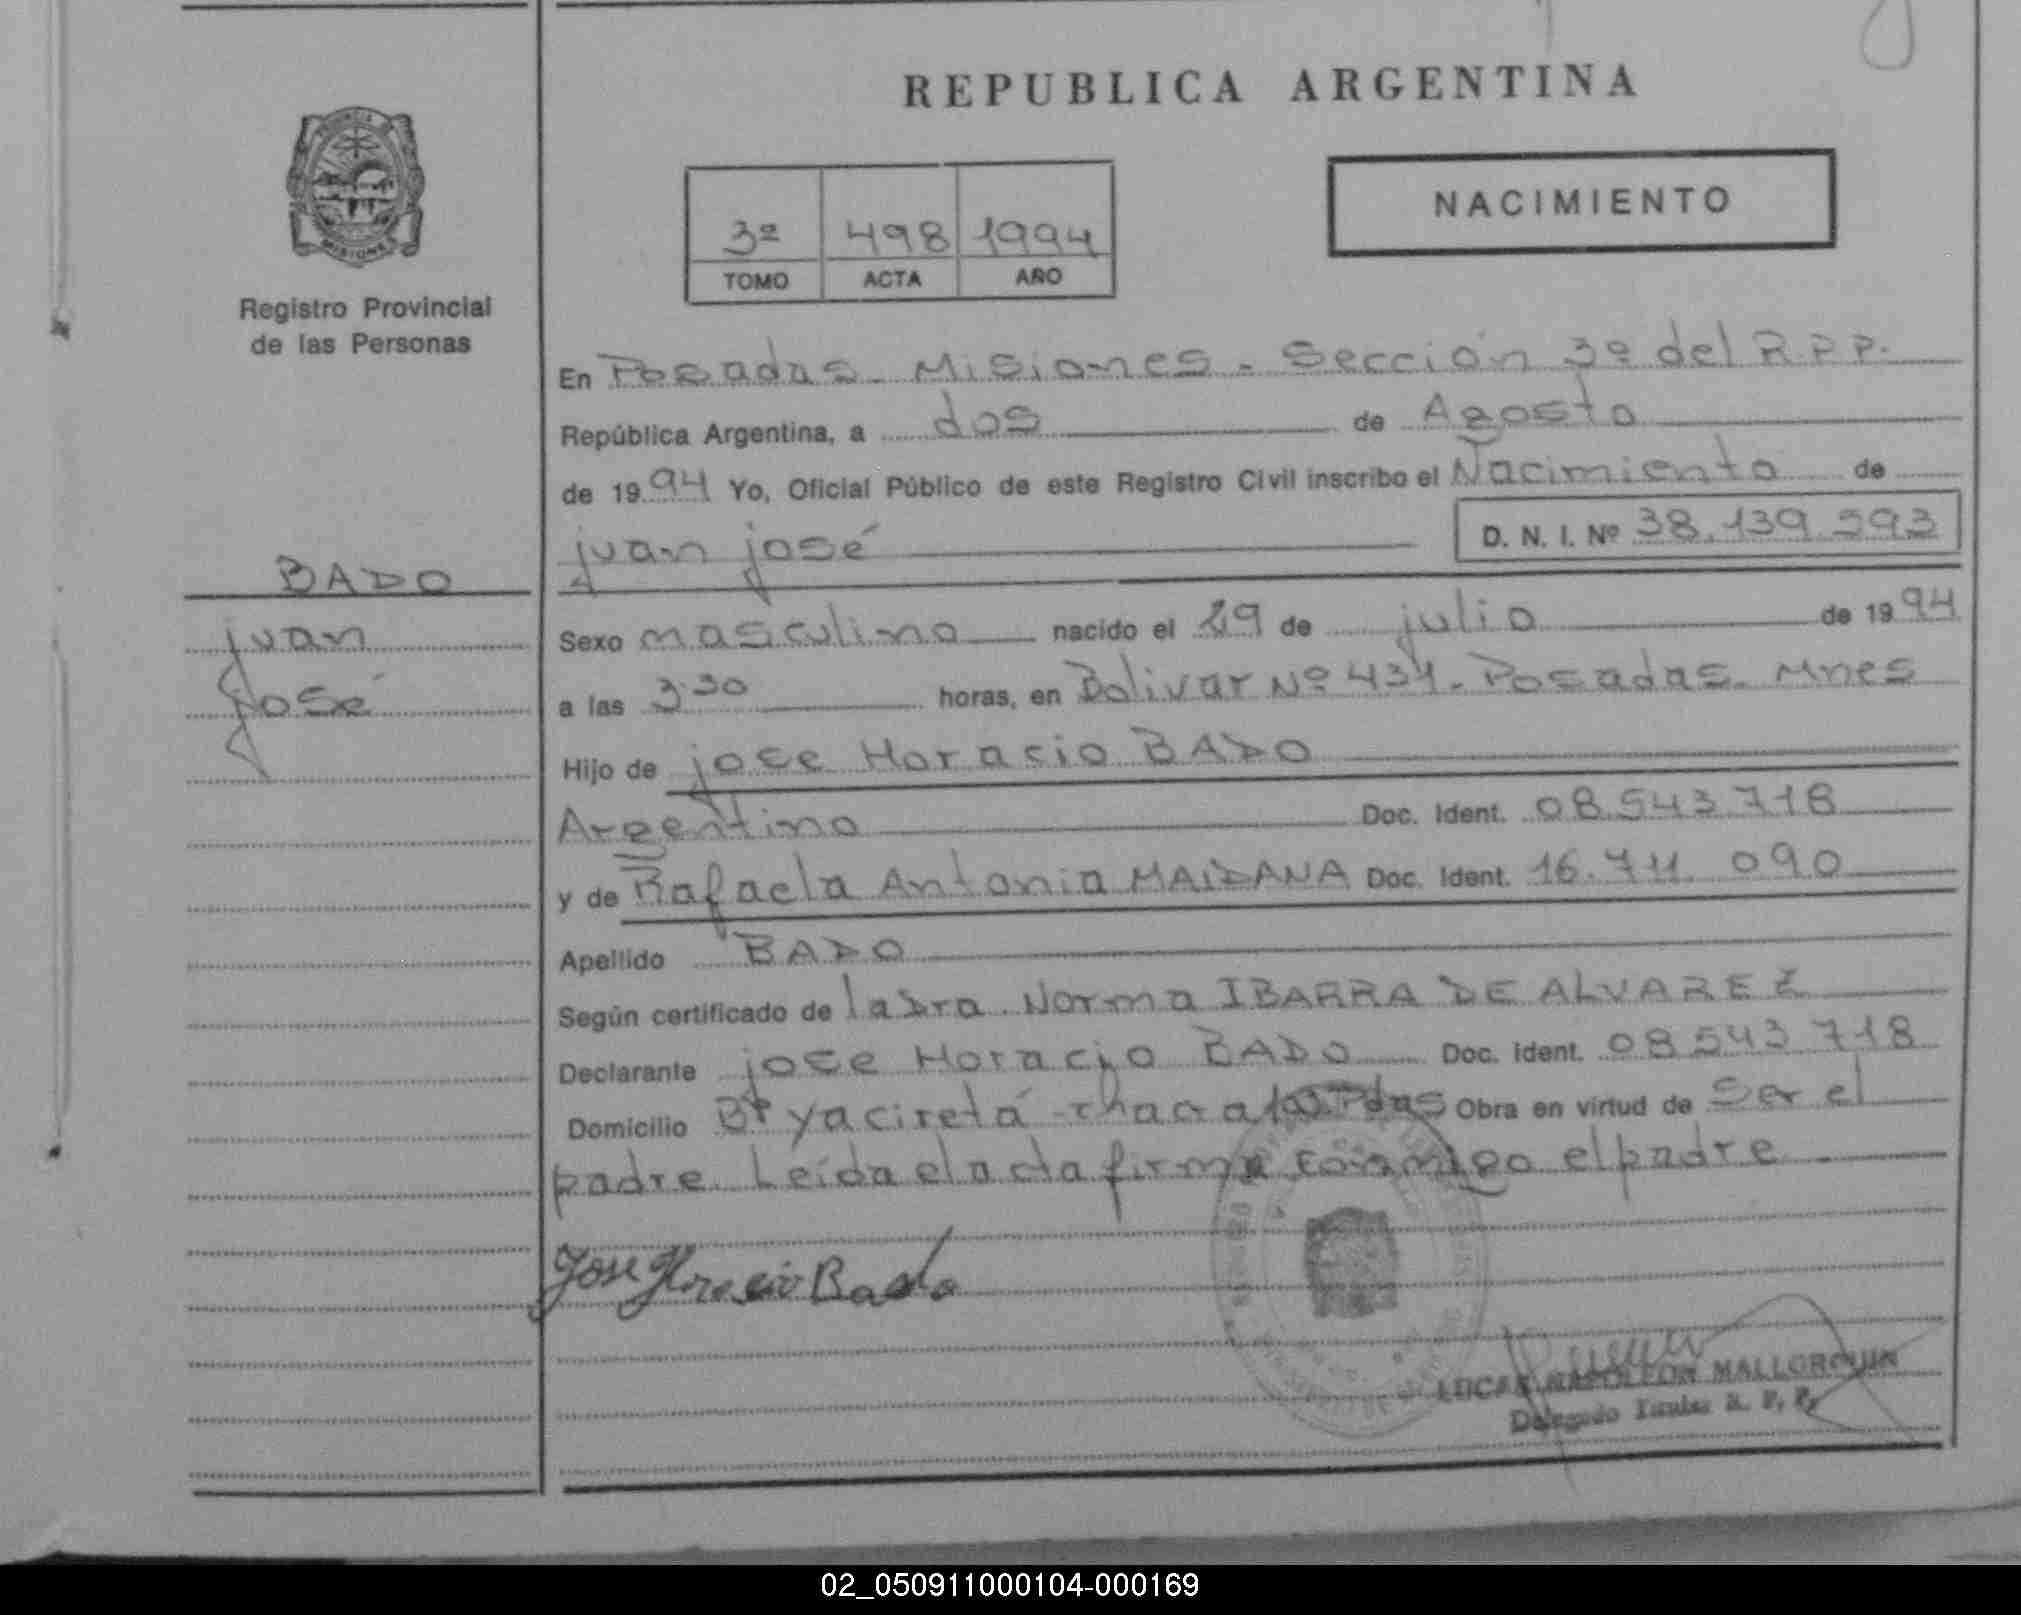 REPUBLICA ARGENTINA
NACIMIENTO
3º 498 1994
TOMO ACTA AÑO
PROVINCIA
MISIONES
Registro Provincial
de las Personas
BADO
juan
josé
En Posadas. Misiones. Sección 3º del R.P.P.
República Argentina, a dos de Agosto
de 1994 Yo, Oficial Público de este Registro Civil inscribo el Nacimiento de
juan josé D. N. I. Nº 38.139.593
Sexo masculino nacido el 29 de julio de 1994
a las 3:30 horas, en Bolivar Nº 434. Posadas. Mnes
Hijo de jose Horacio BADO
Argentino Doc. Ident. 08.543.718
y de Rafaela Antonia MAIDANA Doc. Ident. 16.711.090
Apellido BADO
Según certificado de la Dra. Norma IBARRA DE ALVAREZ
Declarante jose Horacio BADO Doc. Ident. 08.543.718
Domicilio Bº yaciretá chacra Pdas Obra en virtud de Ser el
padre. Leída el acta firma conmigo el padre
Jose Horacio Bado
LUCAS NAPOLEON MALLORQUIN
Delegado Titular R. P. P.
02_050911000104-000169